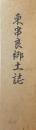 東串良郷土誌